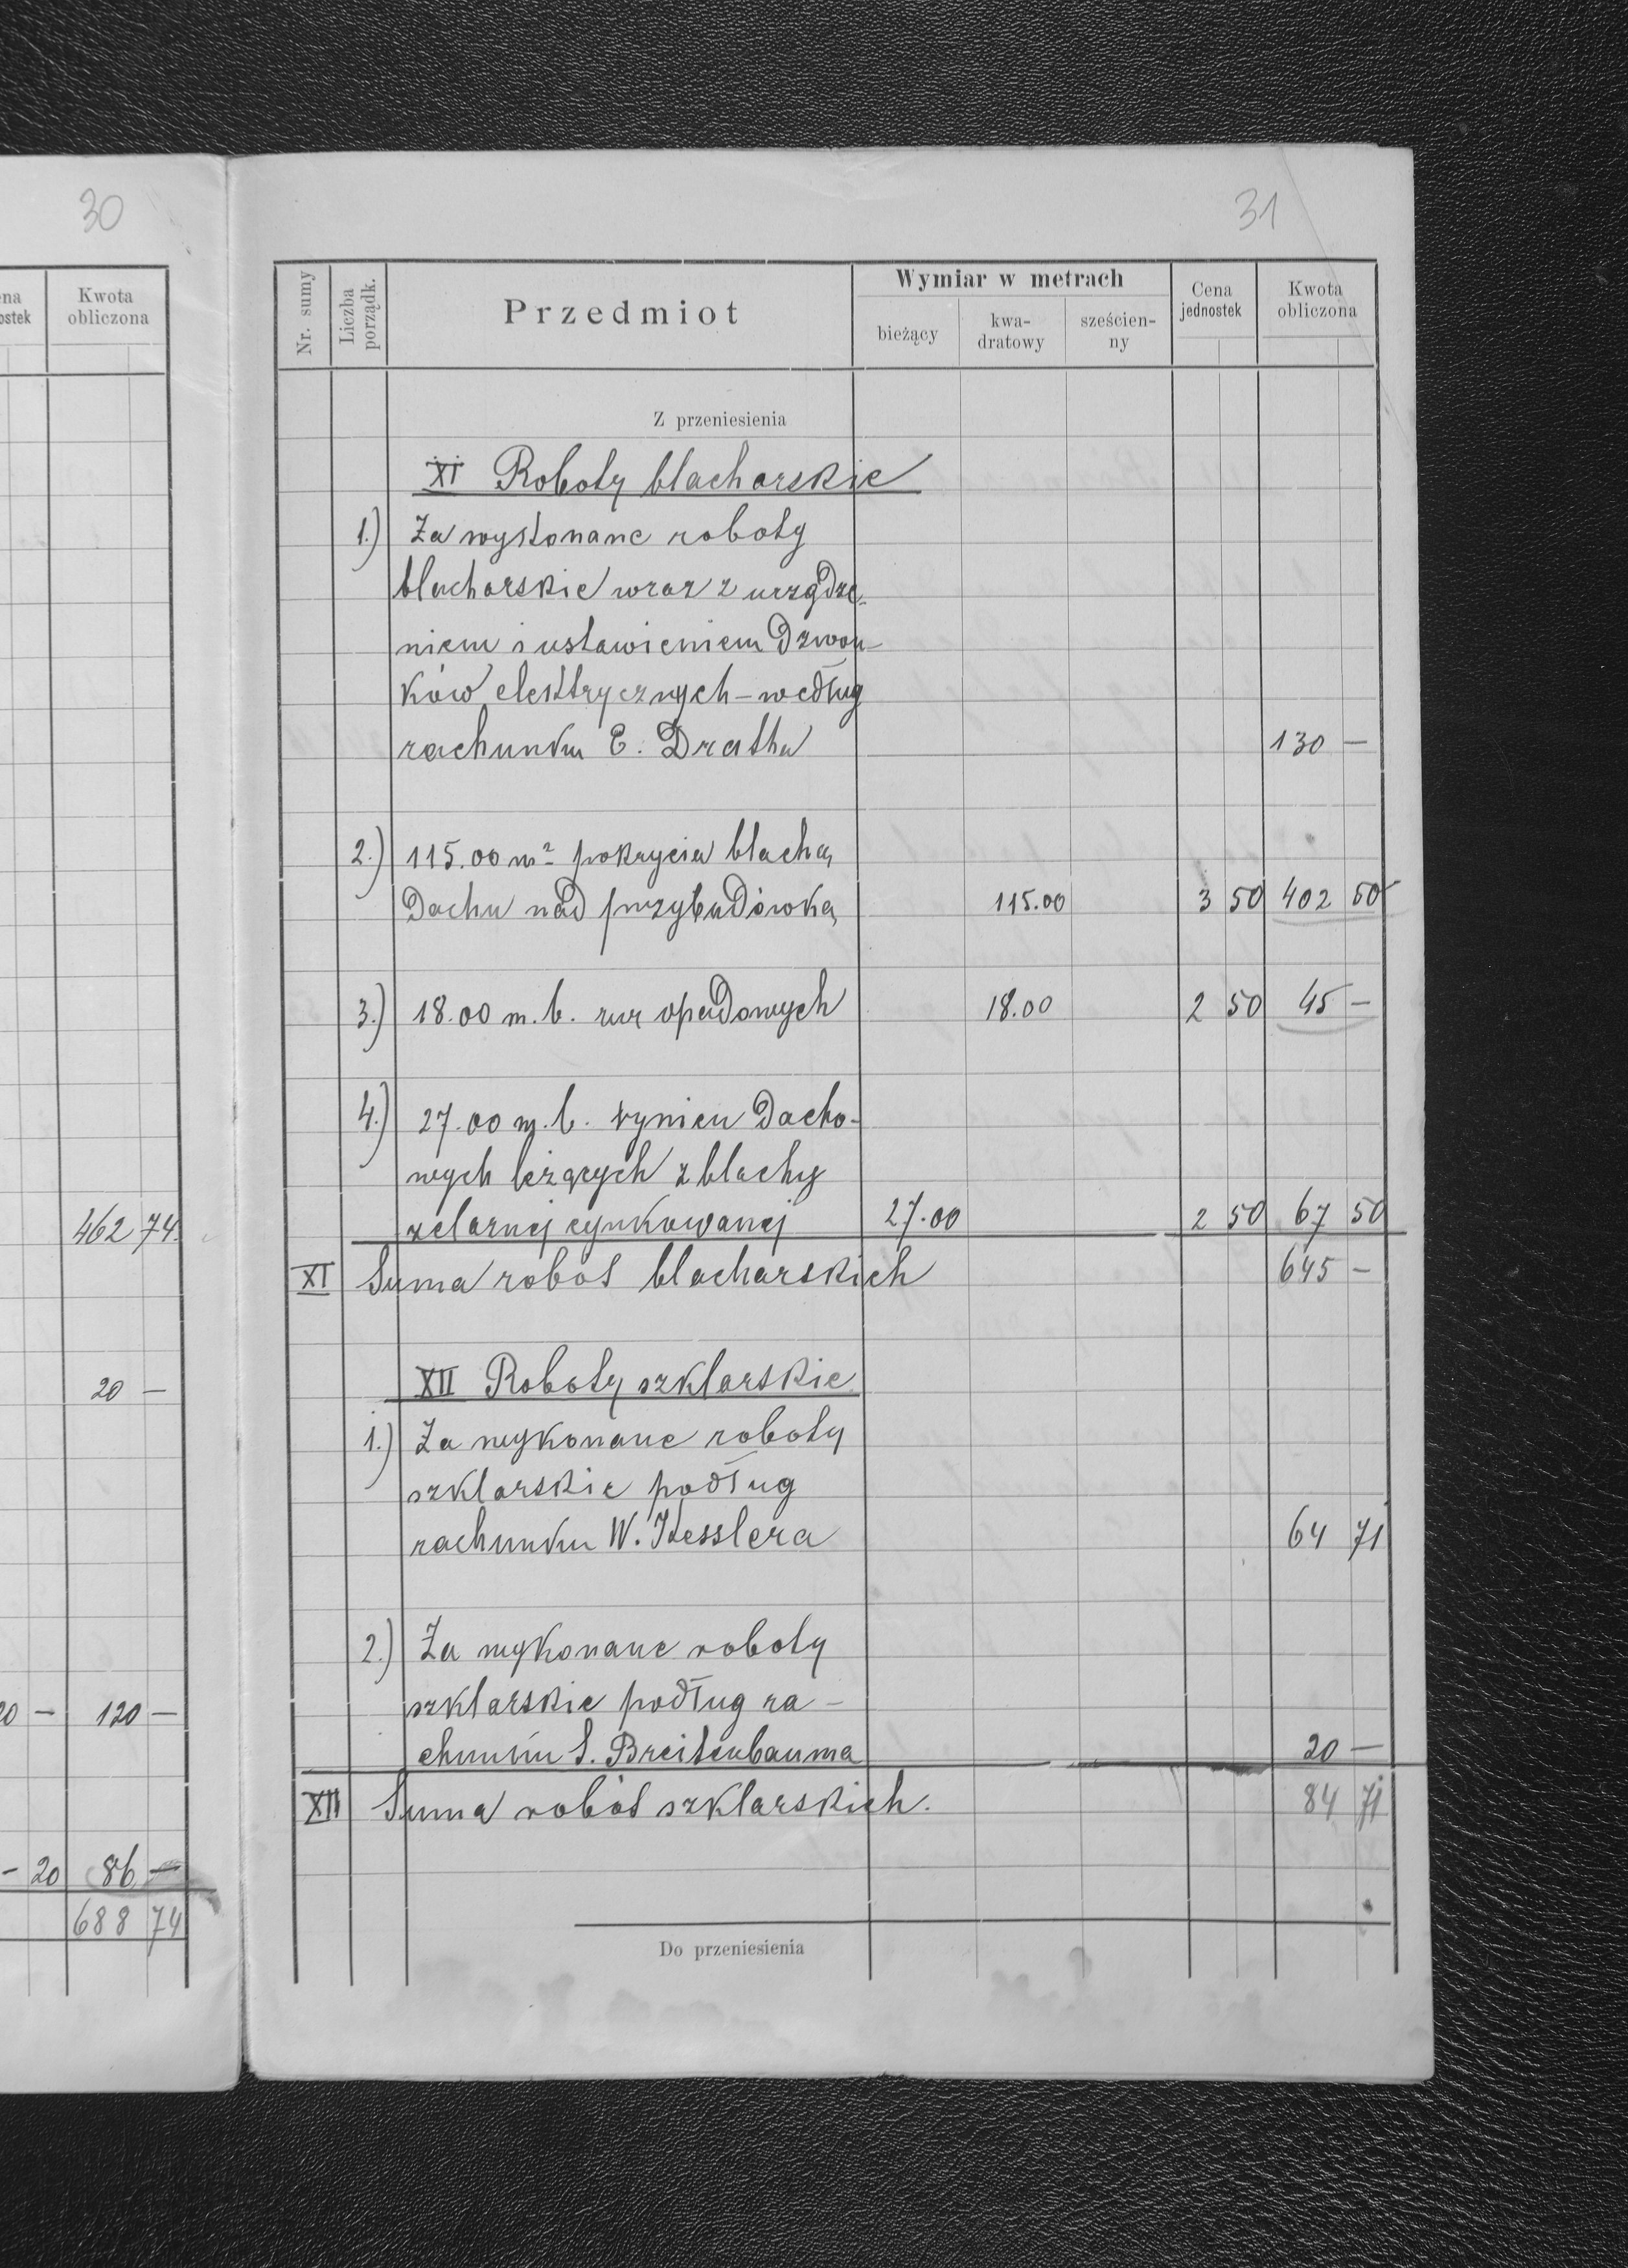 30
ena
ostek
Kwota
obliczona
462 74
20 —
20 — 120 —
— 20 86 —
688 74
31
Nr. sumy
Liczba porządk.
Przedmiot
Wymiar w metrach
bieżący
kwa-
dratowy
sześcien-
ny
Cena
jednostek
Kwota
obliczona
Z przeniesienia
XI Roboty blacharskie
1.) Za wykonane roboty
blacharskie wraz z urządze-
niem i ustawieniem dzwon-
ków elektrycznych — według
rachunku E. Dratha 130 —
2.) 115.00 m² pokrycia blachą
dachu nad przybudówką 115.00 3 50 402 50
3.) 18.00 m. b. rur opadowych 18.00 2 50 45 —
4.) 27.00 m. b. rynien dacho-
wych leżących z blachy
żelaznej cynkowanej 27.00 2 50 67 50
XI Suma robot blacharskich 645 —
XII Roboty szklarskie
1.) Za wykonane roboty
szklarskie podług
rachunku W. Kesslera 64 71
2.) Za wykonane roboty
szklarskie podług ra-
chunku S. Breitenbauma 20 —
XII Suma robót szklarskich. 84 71
Do przeniesienia